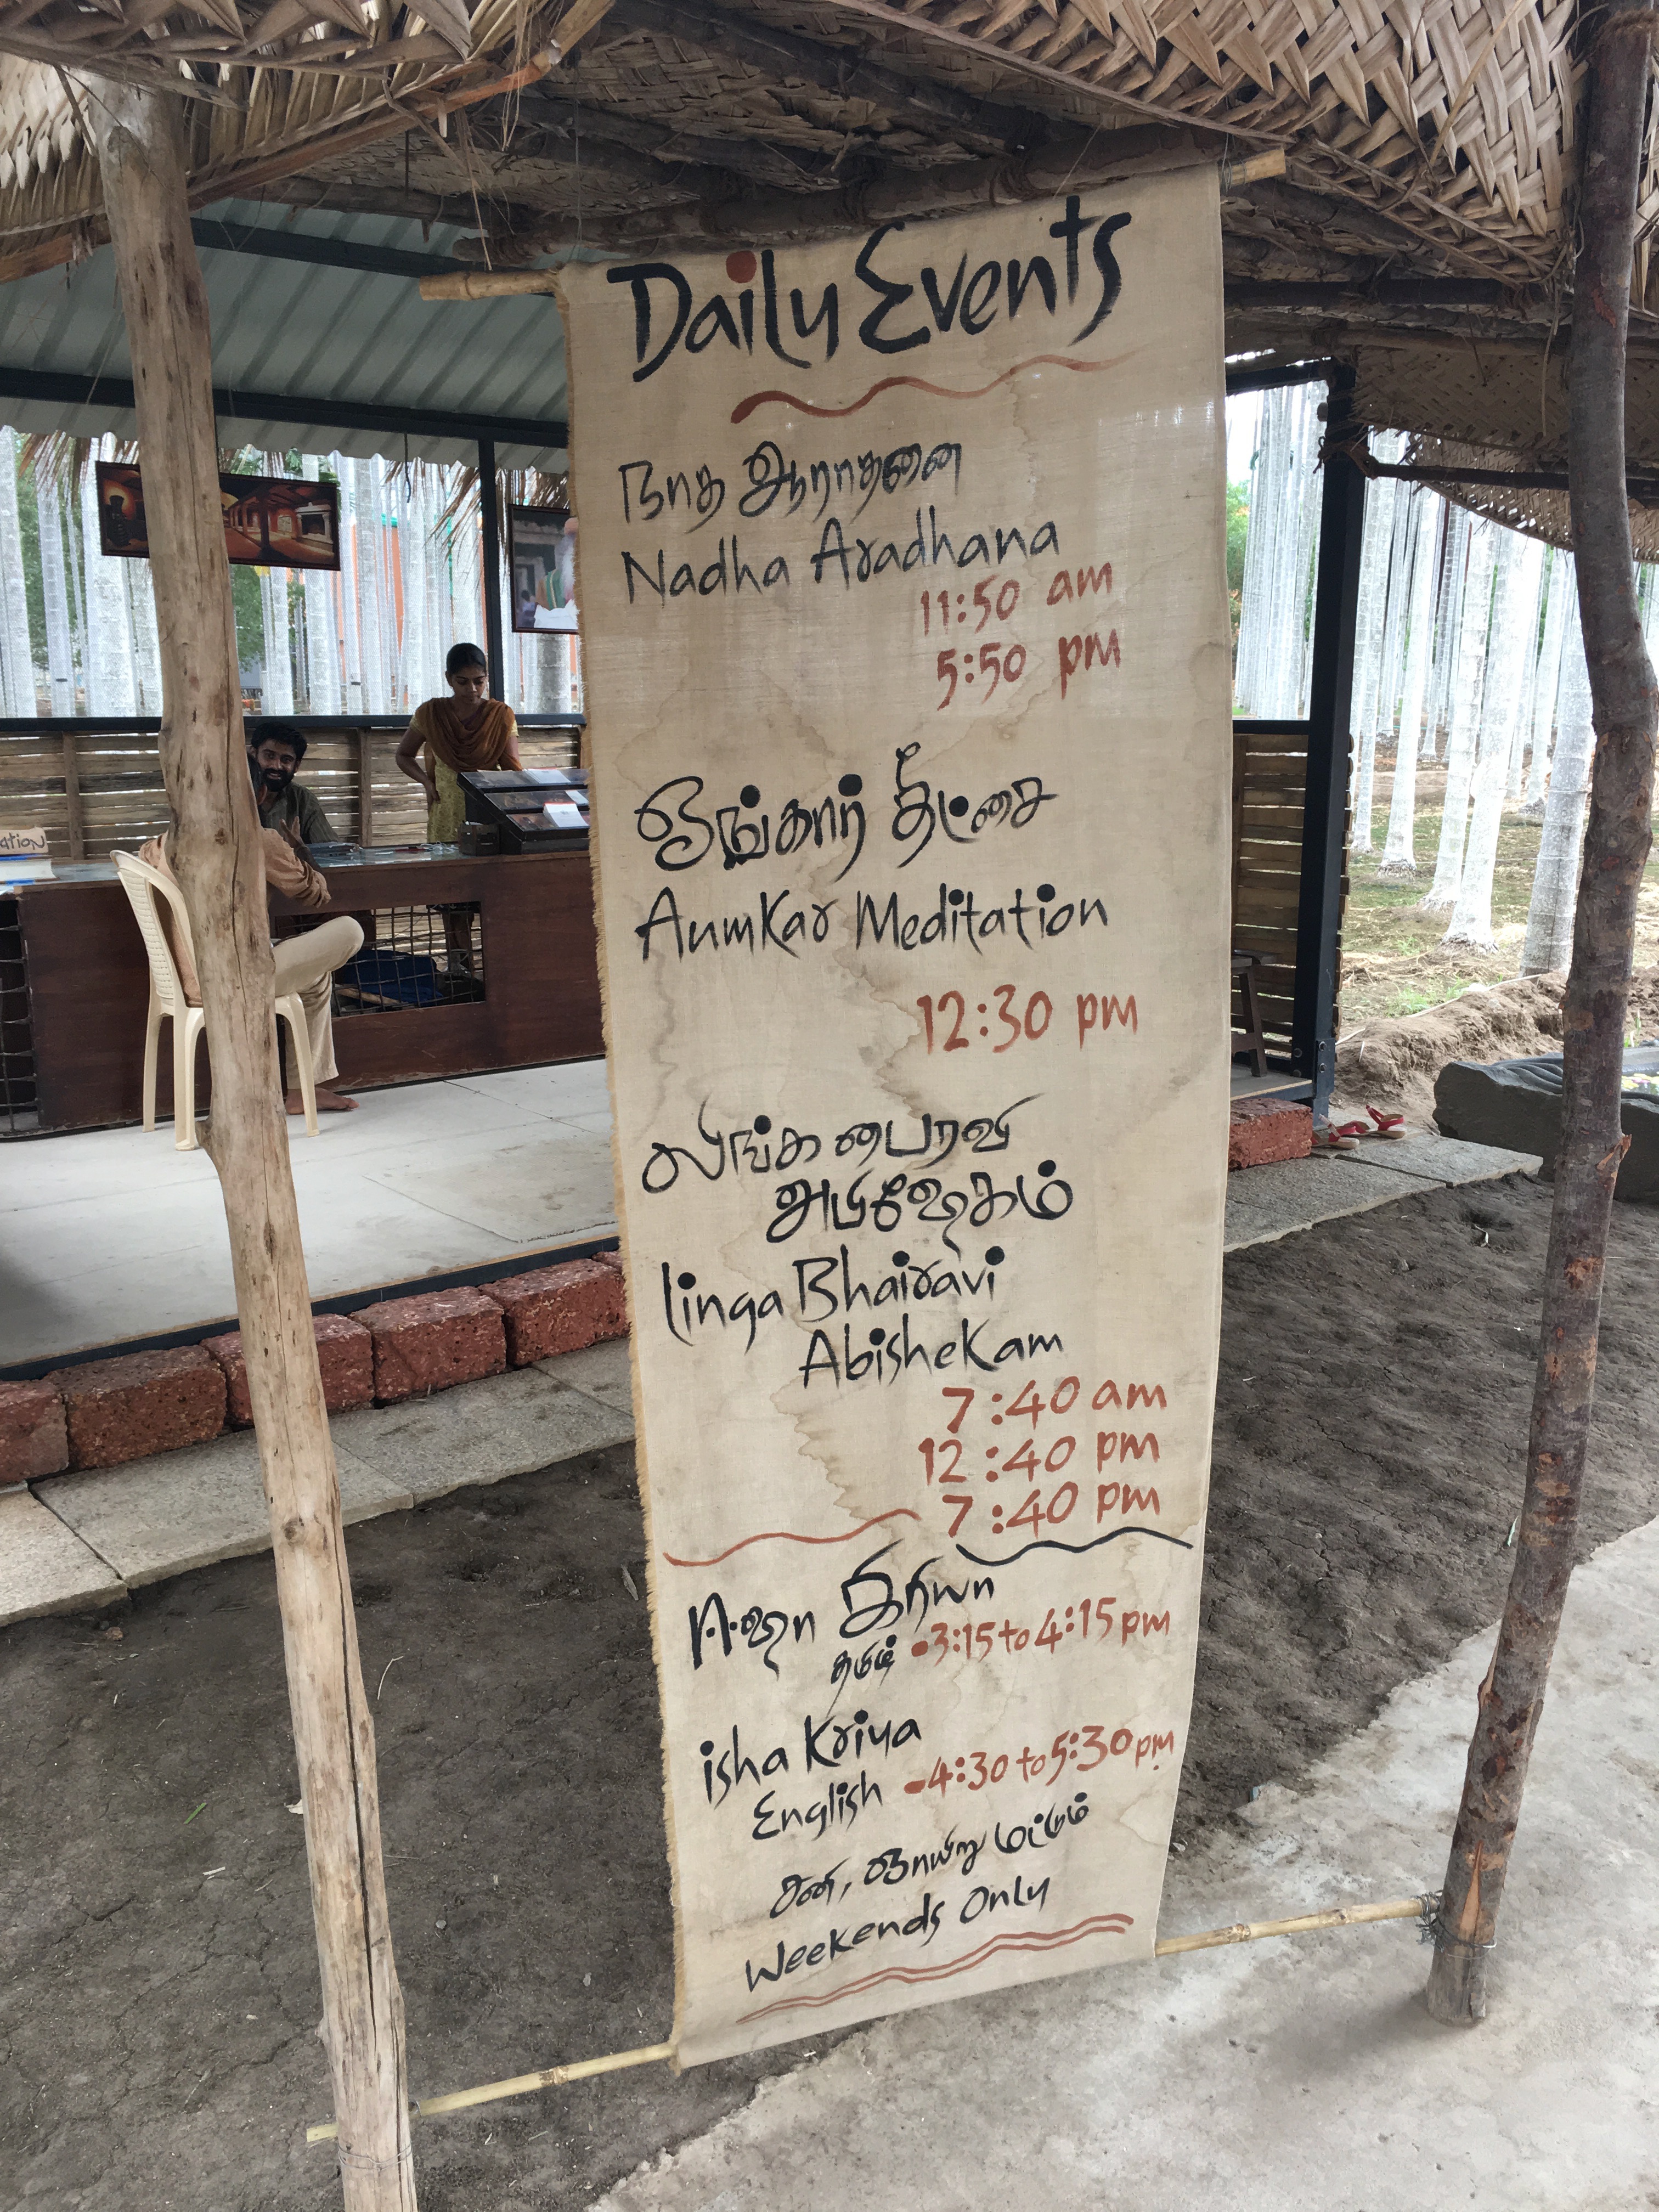 Daily Events
நாத ஆராதனை
Nadha Aradhana
11:50 am
5:50 pm
ஓங்கார் தீட்சை
AumKar Meditation
12:30 pm
லிங்க பைரவி
அபிஷேகம்
linga Bhairavi
Abishekam
7:40 am
12:40 pm
7:40 pm
ஈஷா கிரியா
தமிழ் - 3:15 to 4:15 pm
isha Kriya
English - 4:30 to 5:30 pm
சனி, ஞாயிறு மட்டும்
Weekends Only